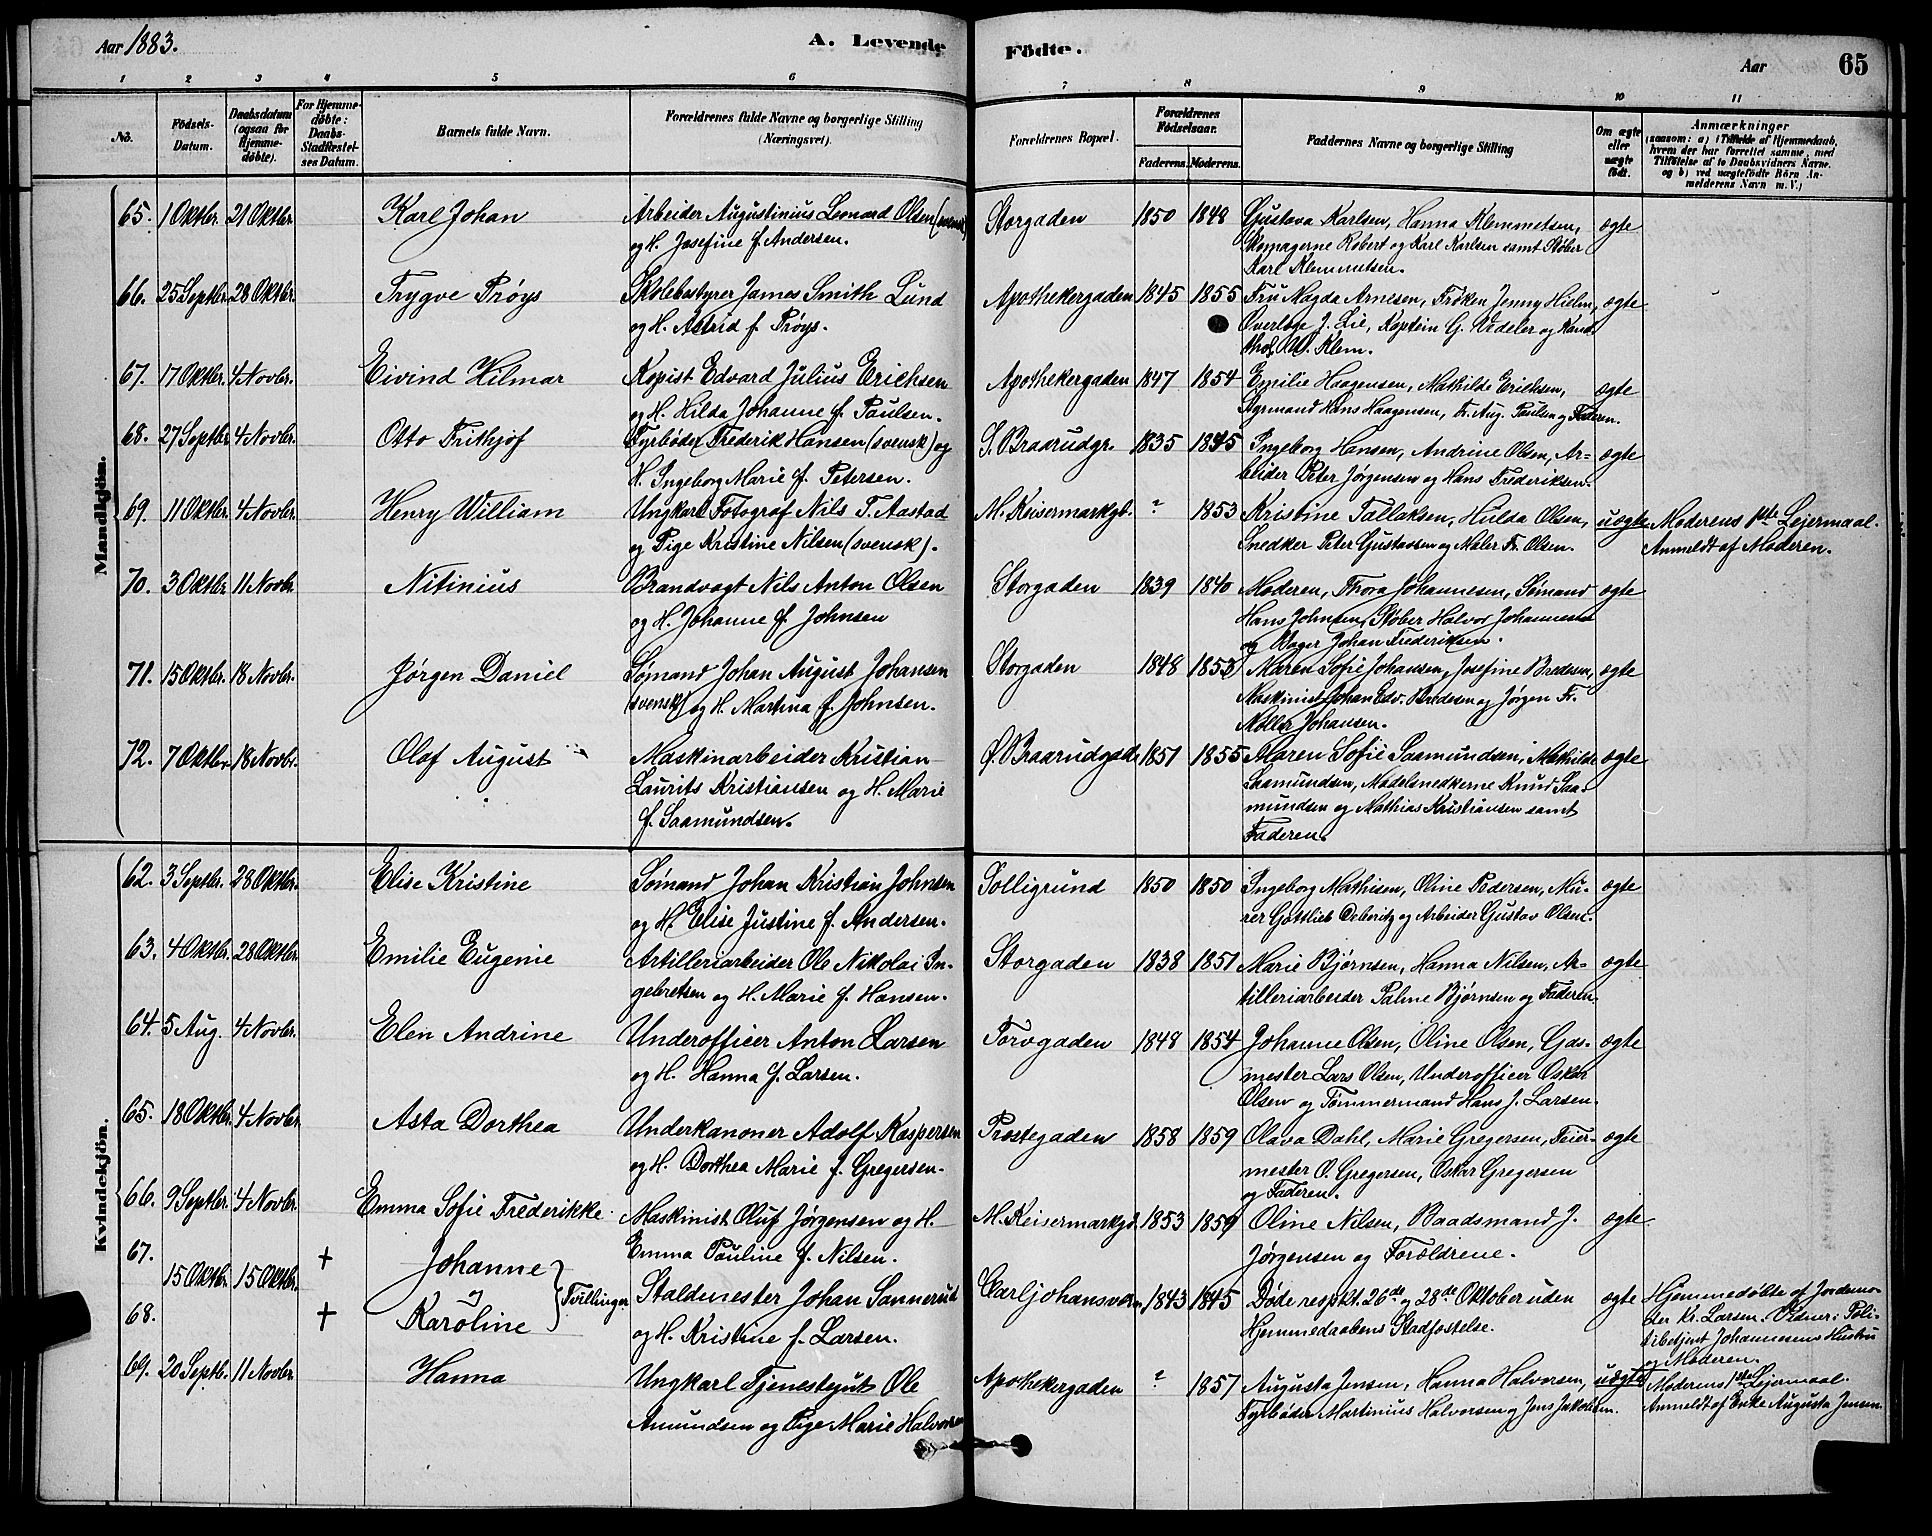 Aar 1883.
A. Levende Födte.
Aar
65
1 2 3 4 5 6 7 8 9 10 11
No. Födsels-Datum. Daabsdatum (ogsaa for Hjemme-döbte). For Hjemme-döbte: Daabs-Stadfæstel-ses Datum. Barnets fulde Navn. Forældrenes fulde Navne og borgerlige Stilling (Næringsvei). Forældrenes Bopæl. Forældrenes Födselsaar. Faderens. Moderens. Faddernes Navne og borgerlige Stilling Om ægte eller uægte födt. Anmærkninger (saasom: a) i Tilfælde af Hjemmedaab, hvem der har forrettet samme, med Tilföielse af to Daabsvidners Navne. og b) ved uægtefödte Börn An-melderens Navn m. V.)
Mandkjön.
65. 1 Oktbr. 21 Oktbr. Karl Johan Arbeider Augustinius Leonard Olsen (svensk) Storgaden 1850 1848 Gustava Karlsen, Hanna Klemmetsen, ægte
og H. Josefine f. Andersen. Skomagerne Robert og Karl Karlsen samt Støber
Karl Klemmetsen.
66. 25 Septbr. 28 Oktbr. Trygve Prøys Skolebestyrer James Smith Lund Apothekergaden 1845 1855 Fru Magda Arnesen, Frøken Jenny Hielm, ægte
og H. Astrid f. Prøys. Overlæge J. Lie, Kaptein G. Vedeler og Kand.
thol. W. Klem.
67. 17 Oktbr. 4 Novbr. Eivind Hilmar Kopist Edvard Julius Erichsen Apothekergaden 1847 1854 Emilie Haagensen, Mathilde Erichsen, ægte
og H. Hilda Johanne f. Paulsen. Styrmand Hans Haagensen, Fr. Aug. Paulsen og Faderen.
68. 27 Septbr. 4 Novbr. Otto Frithjof Fyrbøder Frederik Hansen (svensk) og S. Braarudgr. 1835 1845 Ingeborg Hansen, Andrine Olsen, Ar- ægte
H. Ingeborg Marie f. Petersen. beider Peter Jørgensen og Hans Frederiksen.
69. 11 Oktbr. 4 Novbr. Henry William Ungkarl Fotograf Nils T. Aastad M. Keisermarkgd. ? 1853 Kristine Tallaksen, Hulda Olsen, uægte Moderens 1ste Leiermaal.
og Pige Kristine Nilsen (svensk). Snedker Peter Gustavsen og Maler Fr. Olsen. Anmeldt af Moderen.
70. 3 Oktbr. 11 Novbr. Nitinius Brandvagt Nils Anton Olsen Storgaden 1839 1840 Moderen, Thora Johannesen, Sømand ægte
og H. Johanne f. Johnsen Hans Johnsen, Støber Halvor Johannesen
og Bager Johan Frederiksen.
71. 15 Oktbr. 18 Novbr. Jørgen Daniel Sømand Johan August Johansen Storgaden 1848 1853 Maren Sofie Johansen, Josefine Bredesen, ægte
(svensk) og H. Martina f. Johnsen. Maskinist Johan Edv. Bredesen og Jørgen Fr.
Møller Johansen.
72. 7 Oktbr. 18 Novbr. Olaf August Maskinarbeider Kristian Ø. Braarudgade 1851 1855 Maren Sofie Saamundsen, Mathilde ægte
Laurits Kristiansen og H. Marie Saamundsen, Modelsnedkerne Knud Saa-
f. Saamundsen. mundsen og Mathias Kristiansen samt
Faderen.
Kvindekjön.
62. 3 Septbr. 28 Oktbr. Elise Kristine Sømand Johan Kristian Johnsen Solligrund 1850 1850 Ingeborg Mathisen, Oline Pedersen, Mu- ægte
og H. Elise Justine f. Andersen. rer Gottlieb Deberitz og Arbeider Gustav Olsen.
63. 4 Oktbr. 28 Oktbr. Emilie Eugenie Artilleriarbeider Ole Nikolai In- Storgaden 1838 1851 Marie Bjørnsen, Hanna Nilsen, Ar- ægte
gebretsen og H. Marie f. Hansen. tilleriarbeider Palme Bjørnsen og Faderen.
64. 5 Aug. 4 Novbr. Elen Andrine Underofficer Anton Larsen Torvgaden 1848 1854 Johanne Olsen, Oline Olsen, Gas- ægte
og H. Hanna f. Larsen. mester Lars Olsen, Underofficer Oskar
Olsen og Tømmermand Hans J. Larsen.
65. 18 Oktbr. 4 Novbr. Asta Dorthea Underkanoner Adolf Kaspersen Prostegaden 1858 1859 Olava Dahl, Marie Gregersen, Feier- ægte
og H. Dorthea Marie f. Gregersen. mester O. Gregersen, Oskar Gregersen
og Faderen.
66. 9 Septbr. 4 Novbr. Emma Sofie Frederikke. Maskinist Oluf Jørgensen og H. M. Keisermarkgd. 1853 1859 Oline Nilsen, Baadsmand J. ægte
Emma Pauline f. Nilsen. Jørgensen og Forældrene.
67. + Johanne
15 Oktbr. 15 Oktbr. og Tvillinger Staldmester Johan Sannerud Carljohansværn 1843 1845 Døde respkt. 26de og 28de Oktober uden ægte Hjemmedøbte af Jordemo-
68. + Karoline og H. Kristine f. Larsen. Hjemmedaabens Stadfæstelse. der Kr. Larsen. Vidner: Poli-
tibetjent Johannesens Hustru
og Moderen.
69. 20 Septb. 11 Novbr. Hanna Ungkarl Tjenestegut Ole Apothekergaden ? 1857 Augusta Jensen, Hanna Halvorsen, uægte Moderens 1ste Leiermaal.
Amundsen og Pige Marie Halvorsen Fyrbøder Martinius Halvorsen og Jens Jakobsen. Anmeldt af Enke Augusta Jensen.